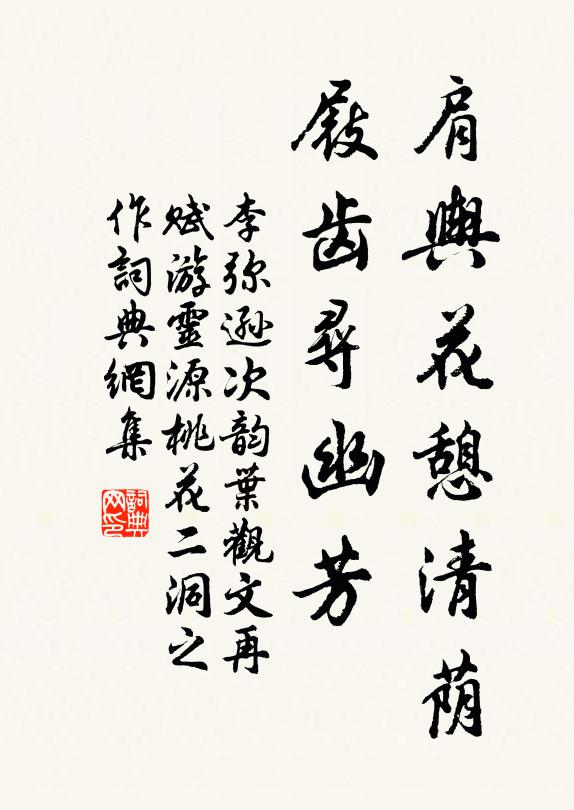 肩輿花憩清蔭
屐齒尋幽芳
李弥遜次韵葉觀文再
賦游靈源桃花二洞之
作詞典網集
詞典网印